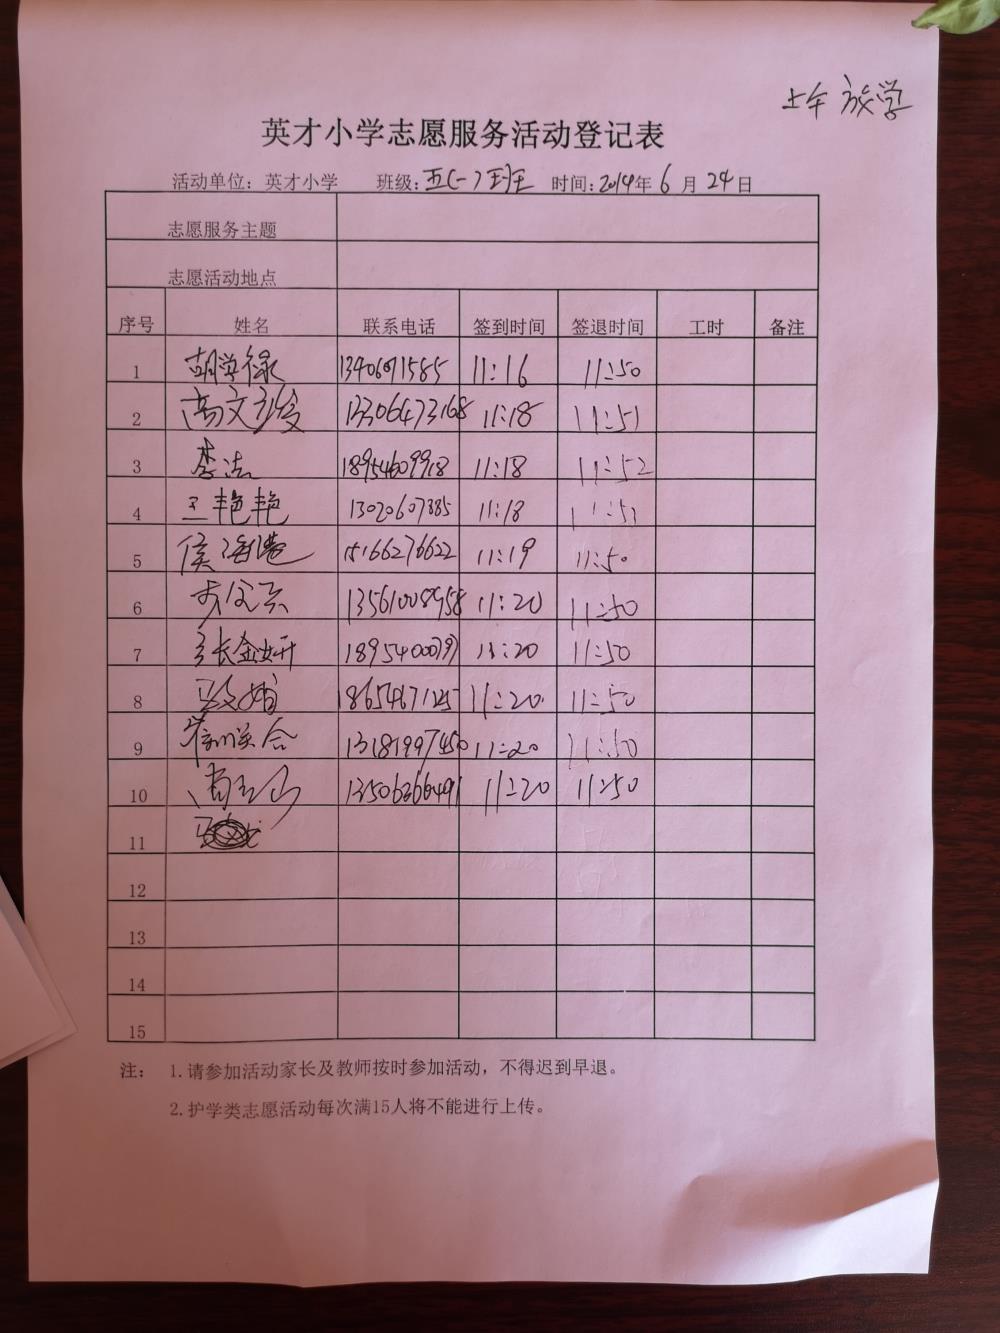 上午 放学
英才小学志愿服务活动登记表
活动单位：英才小学 班级：五(一)班 时间：2019年 6 月 24 日
志愿服务主题
志愿活动地点
序号 姓名 联系电话 签到时间 签退时间 工时 备注
1 胡学禄 11:16 11:50
2 高文 13306473168 11:18 11:51
3 李洁 18954609918 11:18 11:52
4 王艳艳 13020607385 11:18 11:51
5 侯海港 15166276622 11:19 11:50
6 13561008958 11:20 11:50
7 张金妍 11:20 11:50
8 18654671125 11:20 11:50
9 13181997450 11:20 11:50
10 13506366491 11:20 11:50
11
12
13
14
15
注： 1.请参加活动家长及教师按时参加活动，不得迟到早退。
2.护学类志愿活动每次满15人将不能进行上传。